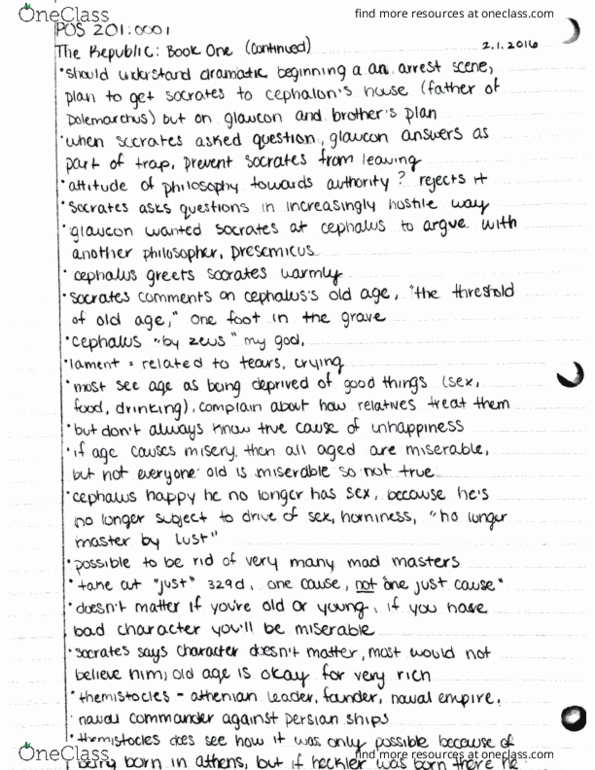 OneClass
find more resources at oneclass.com
POS 201:0001
The Republic: Book One (continued) 2.1.2016
• should understand dramatic beginning a an arrest scene,
plan to get socrates to cephalon's house (father of
Polemarchus) but on glaucon and brother's plan
• when socrates asked question, glaucon answers as
part of trap, prevent socrates from leaving
• attitude of philosophy towards authority? rejects it
• Socrates asks questions in increasingly hostile way
• glaucon wanted socrates at cephalus to argue with
another philosopher, presemicus
• cephalus greets socrates warmly
• socrates comments on cephalus's old age, "the threshold
of old age," one foot in the grave
• cephalus "by zeus" my god,
• lament = related to tears, crying
• most see age as being deprived of good things (sex,
food, drinking), complain about how relatives treat them
• but don't always know true cause of unhappiness
• if age causes misery, then all aged are miserable,
but not everyone old is miserable so not true
• cephalus happy he no longer has sex, because he's
no longer subject to drive of sex, horniness, "no longer
master by lust"
• possible to be rid of very many mad masters
• take out "just" 329d, one cause, not "one just cause"
• doesn't matter if you're old or young, if you have
bad character you'll be miserable
• socrates says character doesn't matter, most would not
believe him; old age is okay for very rich
• themistocles - athenian leader, founder, naval empire,
naval commander against persian ships
• themistocles does see how it was only possible because of
being born in athens, but if heckler was born there he
OneClass
find more resources at oneclass.com